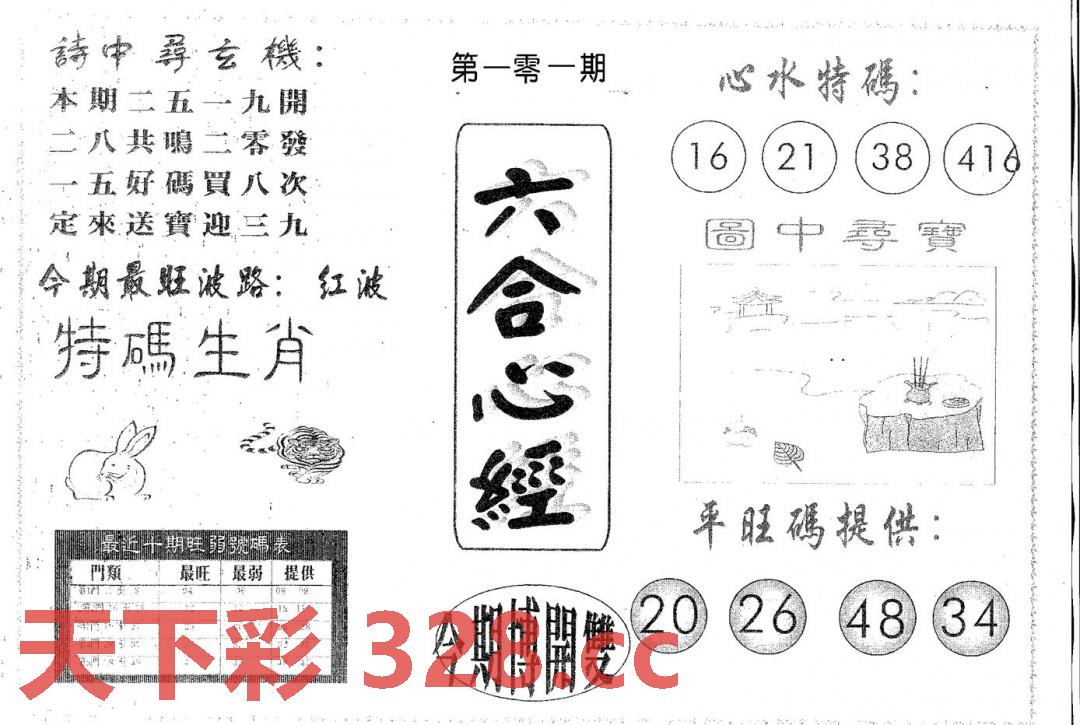 詩中尋玄機：
本期二五一九開
二八共鳴二零發
一五好碼買八次
定來送寶迎三九
今期最旺波路： 红波
特碼生肖
最近十期旺弱號碼表
門類 最旺 最弱 提供
第一零一期
六合心經
今期特開雙
心水特碼：
16 21 38 416
圖中尋寶
平旺碼提供：
20 26 48 34
天下彩 328.cc